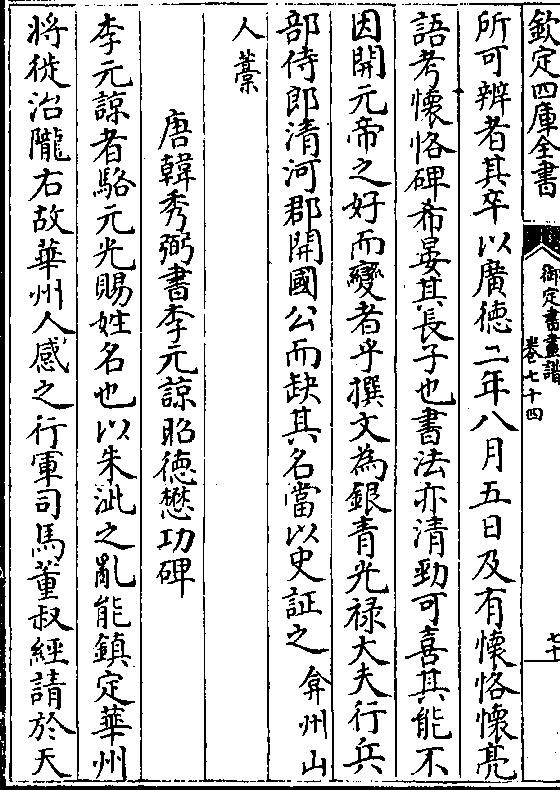 欽定四庫全書
御定書畫譜
卷七十四
七十
所可辨者其卒以廣徳二年八月五日及有懐恪懐亮
語考懐恪碑希晏其長子也書法亦清勁可喜其能不
因開元帝之好而變者乎撰文為銀青光禄大夫行兵
部侍郎清河郡開國公而缺其名當以史証之弇州山
人藁
唐韓秀弼書李元諒昭徳懋功碑
李元諒者駱元光賜姓名也以朱泚之亂能鎮定華州
將徙治隴右故華州人感之行軍司馬董叔經請於天